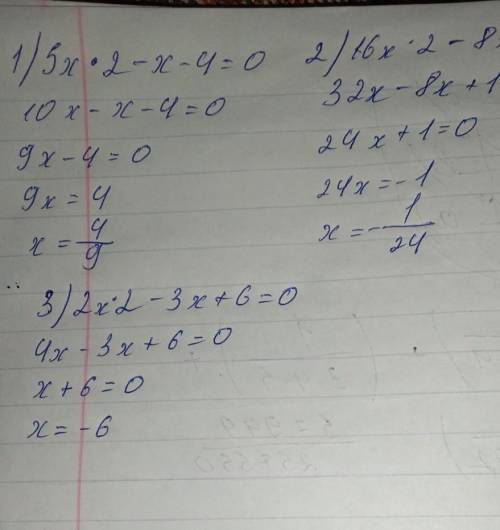 1) 5x·2-x-4=0
10x-x-4=0
9x-4=0
9x=4
x=4/9
2) 16x·2-8
32x-8x+1
24x+1=0
24x=-1
x=-1/24
3) 2x·2-3x+6=0
4x-3x+6=0
x+6=0
x=-6